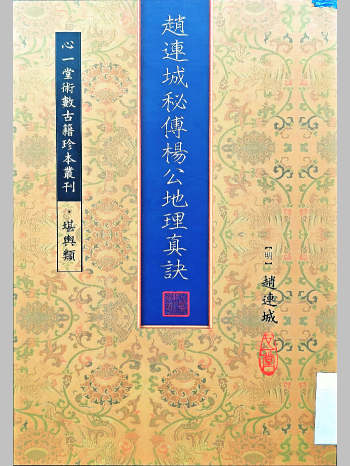 心一堂術數古籍珍本叢刊
·堪輿類
趙連城秘傳楊公地理真訣
【明】趙連城